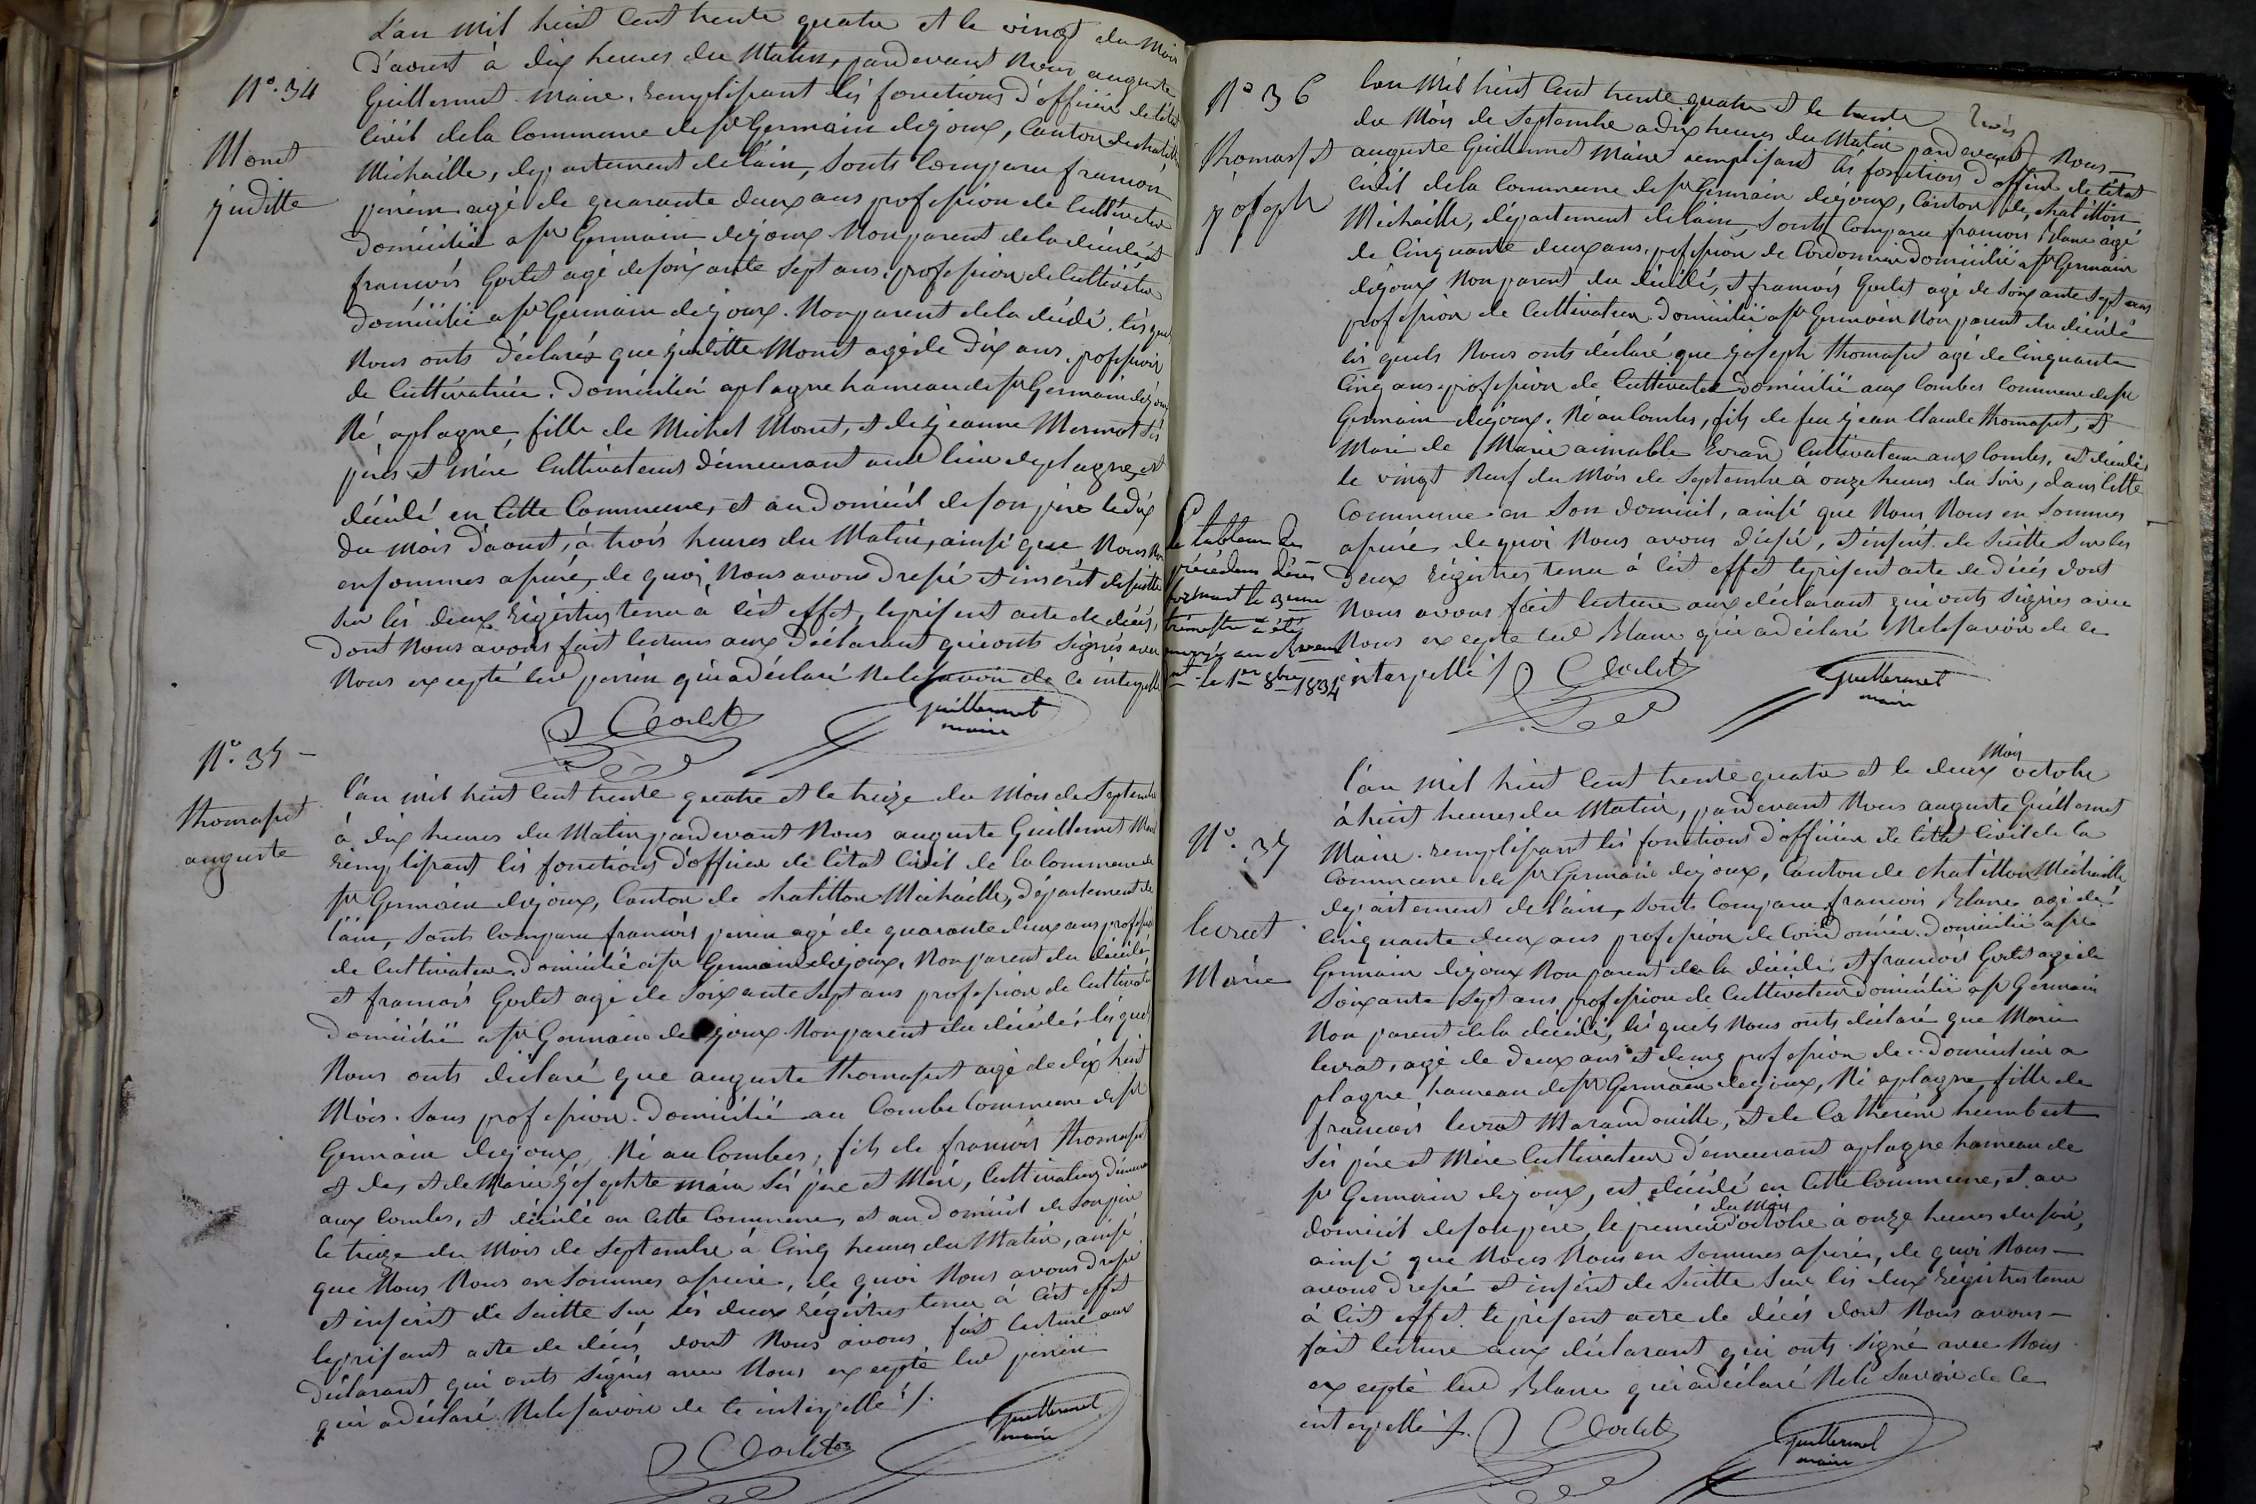 L'an mil huit Cent trente quatre et le vingt du Mois
d'aoust à dix heures du Matin, pardevant Nous auguste
N°. 34
Guillermet Maire, remplissant les fonctions d'officier de l'état
Civil de la Commune de st Germain dejoux, Canton de chatillon
Monet
juditte
Michaille, departement de lain, Sonts Comparu francois
perrin agé de quarante deux ans profession de Cultivateur
domicilié a st Germain dejoux Non parent de la décédé et
francois Godet agé de soixante sept ans, profession de Cultivateur
domicilié a st Germain dejoux. Non parent de la décédé, lesquels
Nous onts déclarés que juditte Monet agé de dix ans, profession
de Cultivatrice. Domicilié a plagne hameau de st Germain dejoux
Né a plagne, fille de Michel Monet, et de jeanne Mermet ses
pére et mére Cultivateurs démeurant aud lieu de plagne, est
décédé en Cette Commune, et au domicil de son pére le dix
du mois d'aoust, à trois heures du Matin, ainsi que Nous Nous
en sommes assuré, de quoi Nous avons dressé et insérit de suitte
sur les deux régistres tenu à cést effet, le présent acte de décés,
dont Nous avons fait lecture aux déclarant qui onts signés avec
Nous excepté led perrin qui a déclaré Ne le savoir de ce interpellé
Godet Guillermet
maire
N°. 35
thomasset
auguste
l'an mil huit Cent trente quatre et le treize du Mois de Septembre
à dix heures du Matin, pardevant Nous auguste Guillermet Maire
remplissant les fonctions d'officier de l'état Civil de la Commune de
st Germain dejoux, Canton de chatillon Michaille, département de
l'ain, Sonts Comparu francois perrin agé de quarante deux ans profession
de Cultivateur. Domicilié a st Germain dejoux, Non parent du décédé
et francois Godet agé de Soixante sept ans profession de Cultivateur
domicilié a st Germain dejoux Non parent du décédé, lesquels
Nous onts déclaré que auguste thomasset agé de dix huit
Mois. Sans profession. Domicilié au Combes Commune de st
Germain dejoux, Né au Combes, fils de francois thomasset
et de, et de Marie joséphte ses pére et Mére, Cultivateurs demeurant
aux Combes, et décédé en Cette Commune, et au domicil de son pére
le treize du Mois de Septembre à Cinq heures du Matin, ainsi
que Nous Nous en sommes assuré, de quoi Nous avons dressé
et insérit de Suitte sur les deux régistres tenu à cést effet
le présent acte de décés dont Nous avons fait lecture aux
déclarant qui onts signés avec Nous excepté led perrin
qui a déclaré Ne le savoir de ce interpellé /.
Godet Guillermet
maire
N° 36
thomasset
joseph
l'an Mil huit Cent trente quatre et le trente
du Mois de Septembre a dix heures du Matin pardevant Nous
auguste Guillermet Maire remplissant les fonctions d'officier de l'état
Civil de la Commune de st Germain dejoux, Canton de chatillon
Michaille, département de lain, Sonts Comparu francois Blanc agé
de Cinquante deux ans, profession de Cordonnier domicilié a st Germain
dejoux Non parent du décédé, et francois Godet agé de Soixante sept ans
profession de Cultivateur. Domicilié a st Germain Non parent du décédé
les quels Nous onts déclaré que joseph thomasset agé de Cinquante
Cinq ans, profession de Cultivateur domicilié aux Combes Commune de st
Germain dejoux. Né au Combes, fils de feu jean Claude thomasset, et
Mari de Marie aimable Evrard Cultivateur aux Combes, est décédé
le vingt Neuf du Mois de Septembre à onze heures du Soir, dans Cette
Commune en Son domicil, ainsi que Nous Nous en Sommes
assuré, de quoi Nous avons dressé, et insérit de Suitte Sur les
deux régistres tenu à cést effet le présent acte de décés dont
Nous avons fait lecture aux déclarant qui onts signés avec
Nous excepté led Blanc qui a déclaré Ne le savoir de ce
interpellé /.
le tableau des
précédens décés
formant le 3eme
trimestre a été
envoyé au
le 1er 8bre 1834
Godet Guillermet
maire
N°. 37
levrat
Marie
l'an mil huit Cent trente quatre et le deux Mois octobre
à huit heures du Matin, pardevant Nous auguste Guillermet
Maire. remplissant les fonctions d'officier de l'état Civil de la
Commune de st Germain dejoux, Canton de chatillon Michaille
département de l'ain, Sonts Comparu francois Blanc agé de
Cinquante deux ans profession de Cordonnier. domicilié a st
Germain dejoux Non parent de la décédé et francois Godet agé de
Soixante sept ans, profession de Cultivateur domicilié a st Germain
Non parent de la décédé, les quels Nous onts déclaré que Marie
levrat, agé de deux ans et demy profession de. domicilié a
plagne hameau de st Germain dejoux, Né a plagne, fille de
francois levrat Marandouille, et de Catherine humbert
Ses pére et Mére Cultivateur démeurant a plagne hameau de
st Germain dejoux, est décédé en Cette Commune, et au
domicil de son pére, le premier du Mois d'octobre à onze heures du soir,
ainsi que Nous Nous en Sommes assuré, de quoi Nous
avons dressé et insérit de Suitte Sur les deux régistres tenu
à cést effet. le présent acte de décés dont Nous avons
fait lecture aux déclarant qui onts signé avec Nous
excepté led Blanc qui a déclaré Ne le Savoir de ce
interpellé /.
Godet Guillermet
maire